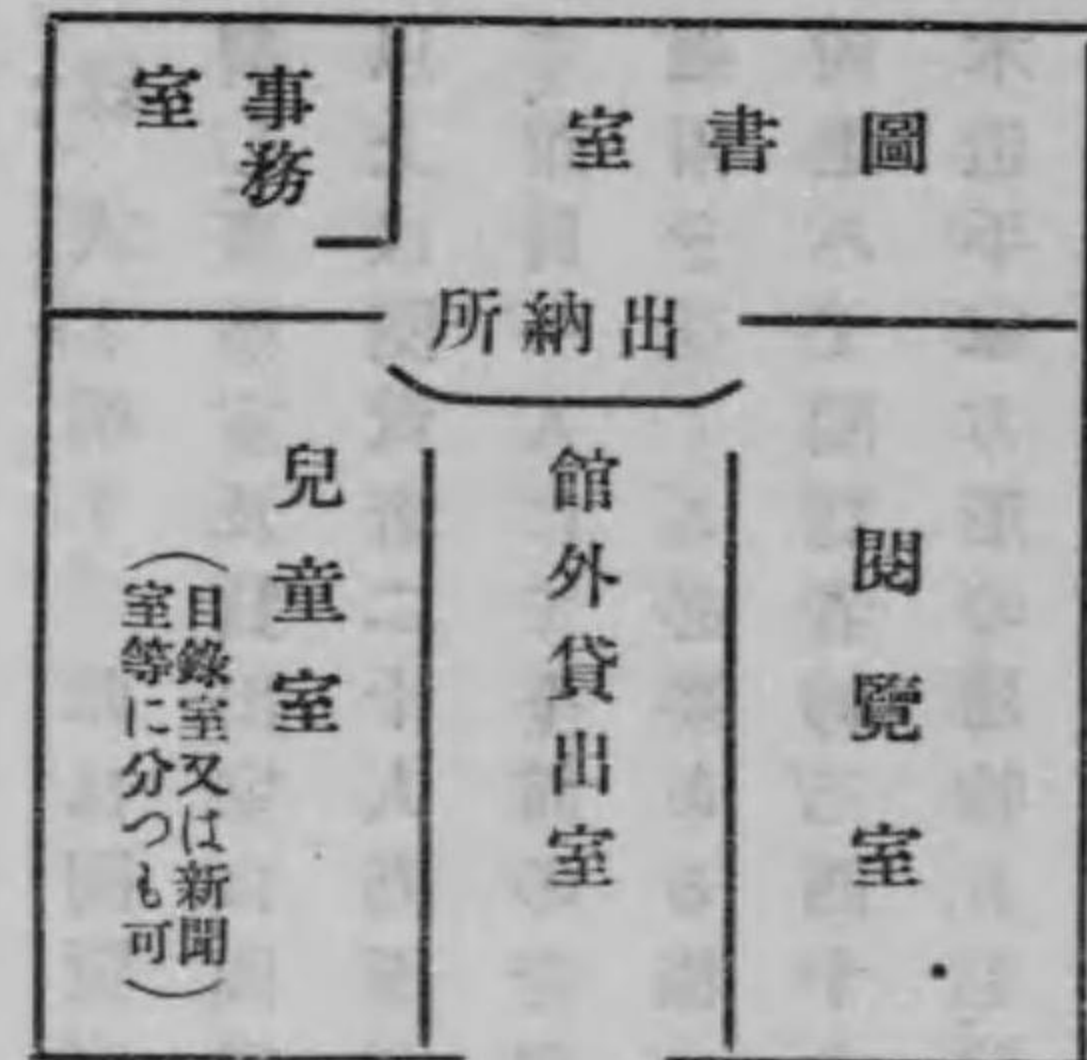 圖書室
事務
室
出納所
閱覽室
館外貸出室
兒童室
（目錄室又は新聞
室等に分つも可）